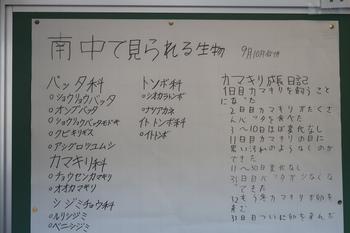 南中で見られる生物 9月10月
バッタ科
○ショウリョウバッタ
○オンブバッタ
○ショウリョウバッタモドキ
○クビキリギス
○アシグロツユムシ
カマキリ科
○チョウセンカマキリ
○オオカマキリ
シジミチョウ科
○ルリシジミ
○ベニシジミ
トンボ科
○シオカラトンボ
○ナツアカネ
イトトンボ科
○イトトンボ
カマキリ成長日記
1日目カマキリを飼うこと
になった
2日目カマキリがたくさ
んバッタを食べた
3〜10日ほぼ変化なし
11日目カマキリの目に
黒い
できた
11〜30日変化なし
31日目バッタがいなくな
てきた
カマキリが卵を
産む
31日目ついに卵を産んだ